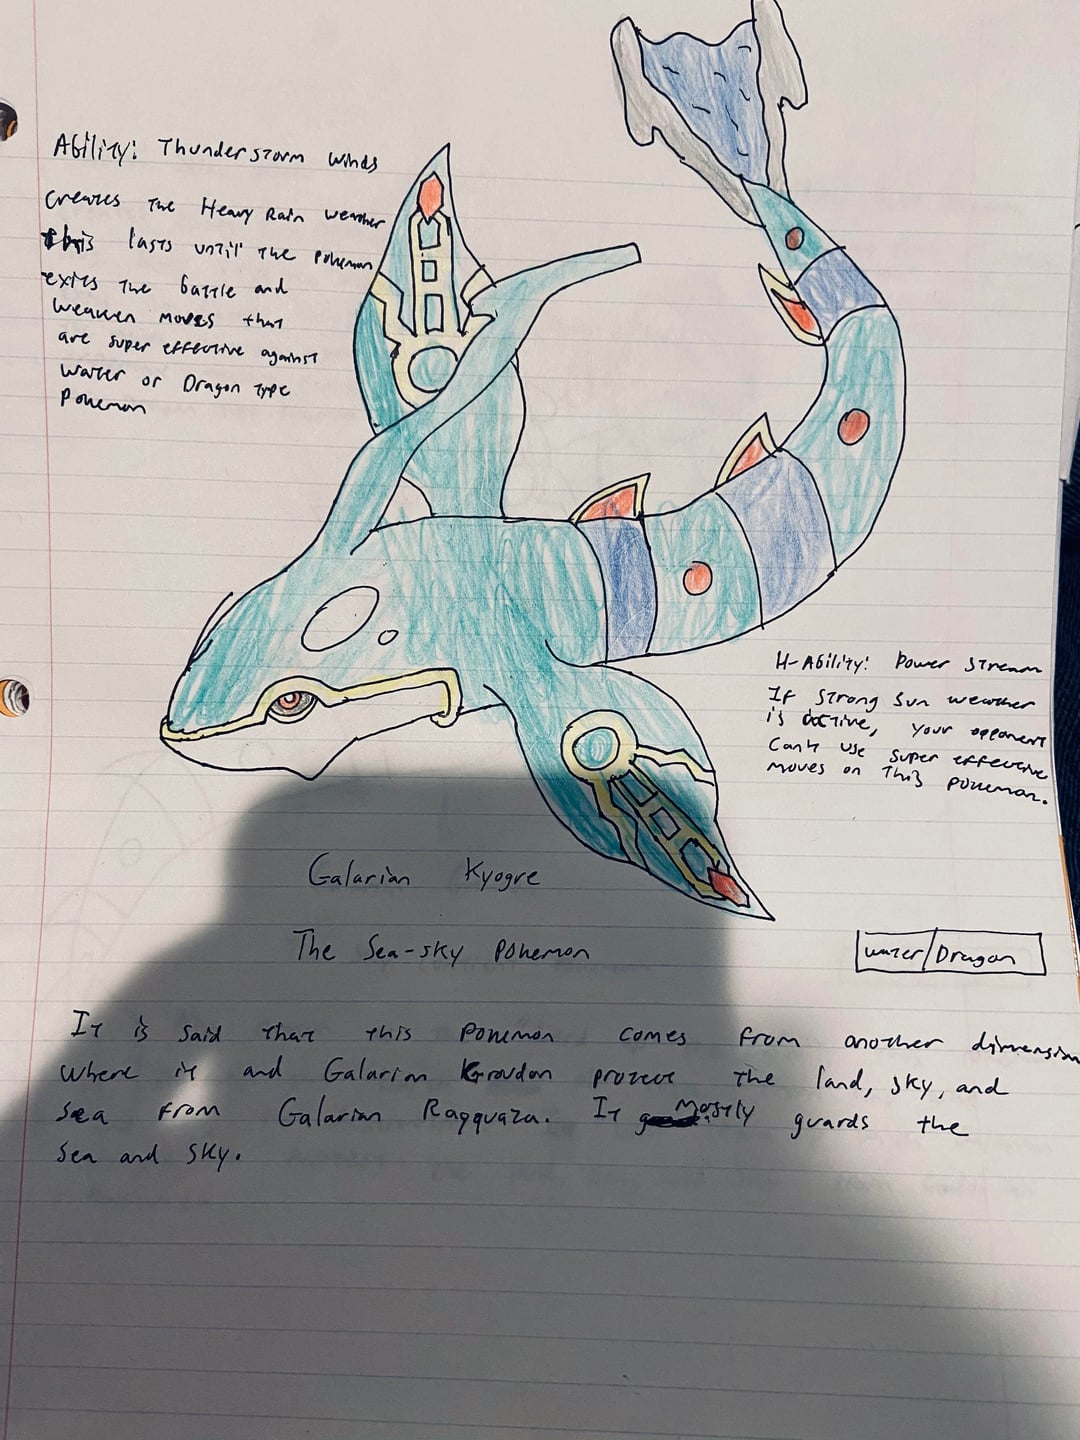 Ability: Thunderstorm winds
Creates the Heavy Rain weather
this lasts until the pokemon
exits the battle and
weaken moves that
are super effective against
Water or Dragon Type
Pokemon
H-Ability: Power Stream
If strong Sun weather
is active, your opponent
Can't use super effective
moves on This pokemon.
Galarian Kyogre
The Sea-sky Pokemon
Water/Dragon
It is said that this Pokemon comes from another dimension
where it and Galarian Groudon protect the land, sky, and
sea from Galarian Rayquaza. It mostly guards the
sea and sky.